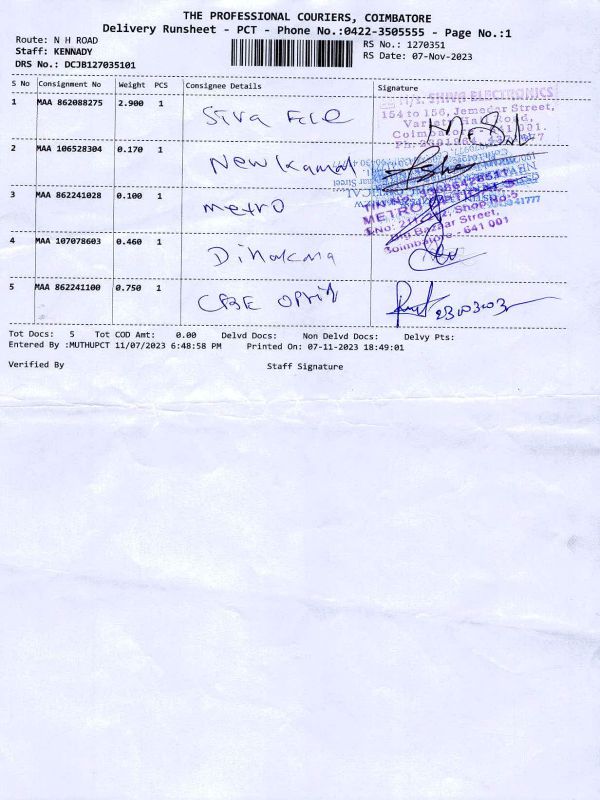 THE PROFESSIONAL COURIERS, COIMBATORE
Delivery Runsheet - PCT - Phone No.:0422-3505555 - Page No.:1
Route: N H ROAD
RS No.: 1270351
Staff: KENNADY
RS Date: 07-Nov-2023
DRS No.: DCJB127035101
S No Consignment No Weight PCS Consignee Details Signature
1 MAA 862088275 2.900 1 Siva
SHIVA ELECTRONICS
154 to 156, Jemedar Street,
2 MAA 106528304 0.170 1 New Kamal
3 MAA 862241028 0.100 1 metro
METRO
Shop No:5
Big Bazaar Street,
Coimbatore - 641 001
4 MAA 107078603 0.460 1 Dinakara
5 MAA 862241100 0.750 1 CBE
Tot Docs: 5 Tot COD Amt: 0.00 Delvd Docs: Non Delvd Docs: Delvy Pts:
Entered By :MUTHUPCT 11/07/2023 6:48:58 PM Printed On: 07-11-2023 18:49:01
Verified By Staff Signature